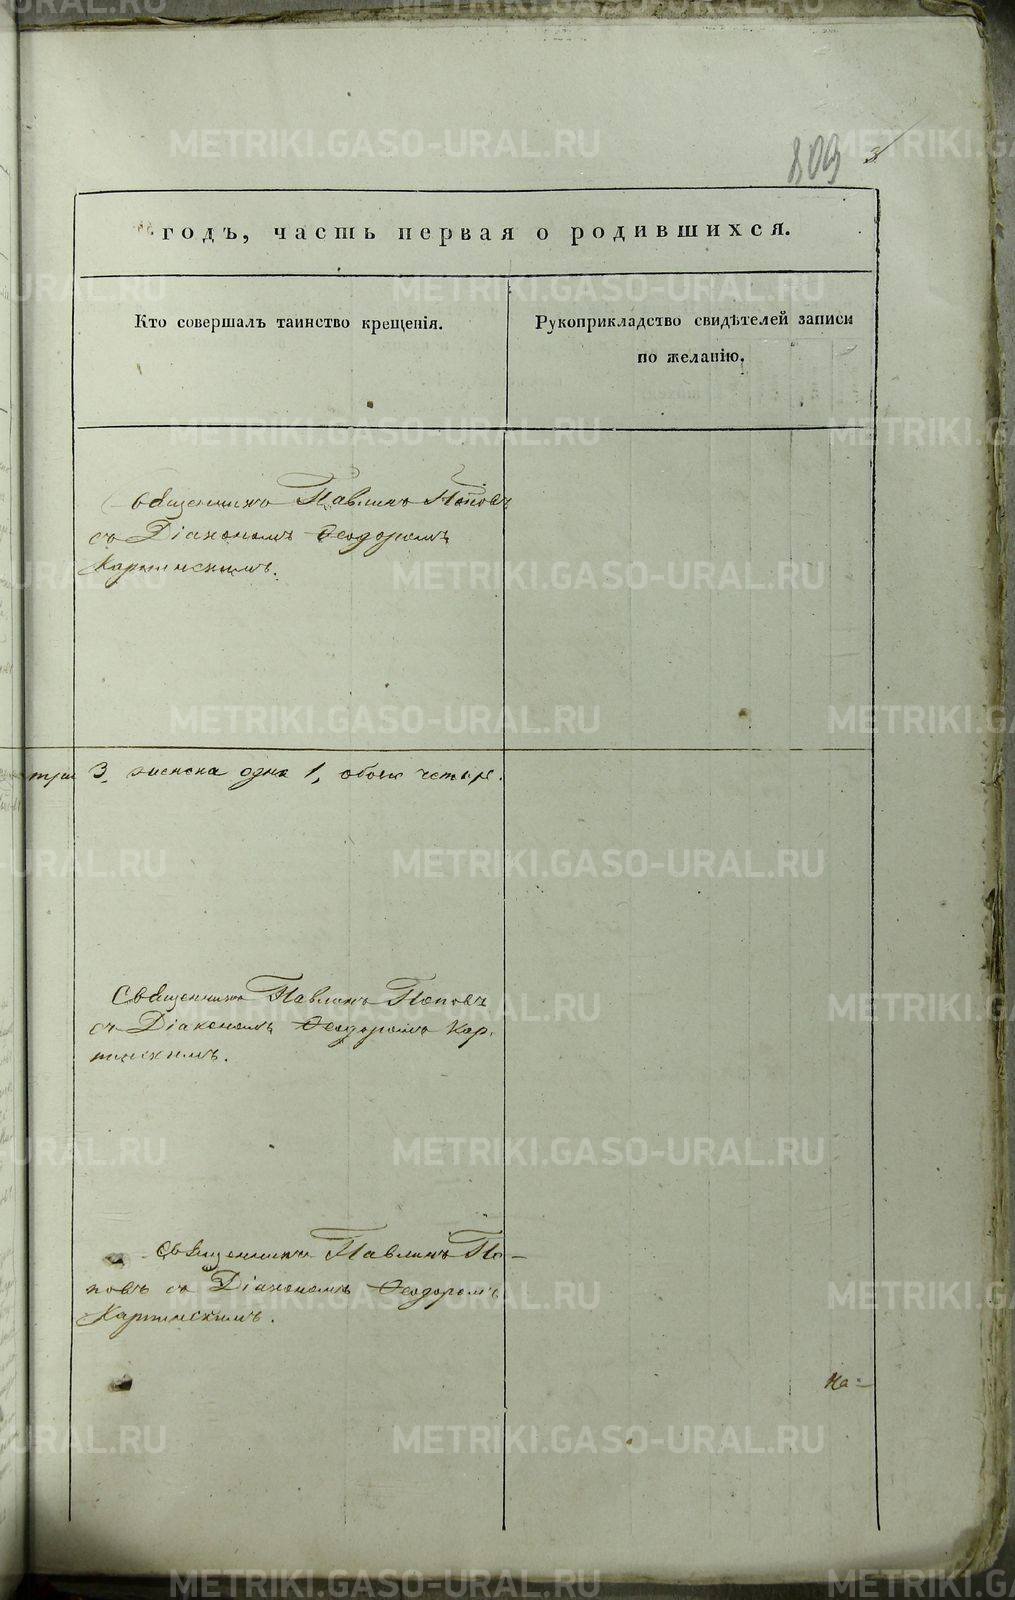 809 3
годъ, часть первая о родившихся.
Кто совершалъ таинство крещенія.
Рукоприкладство свидѣтелей записи
по желанію.
Священникъ Павлинъ Поповъ
съ Діакономъ Ѳеодоромъ
Картинскимъ.
три 3, женска одна 1, обоихъ четыре.
Священникъ Павлинъ Поповъ
съ Діакономъ Ѳеодоромъ Кар-
тинскимъ.
Священникъ Павлинъ По-
повъ съ Діакономъ Ѳеодоромъ
Картинскимъ.
На-
METRIKI.GASO-URAL.RU